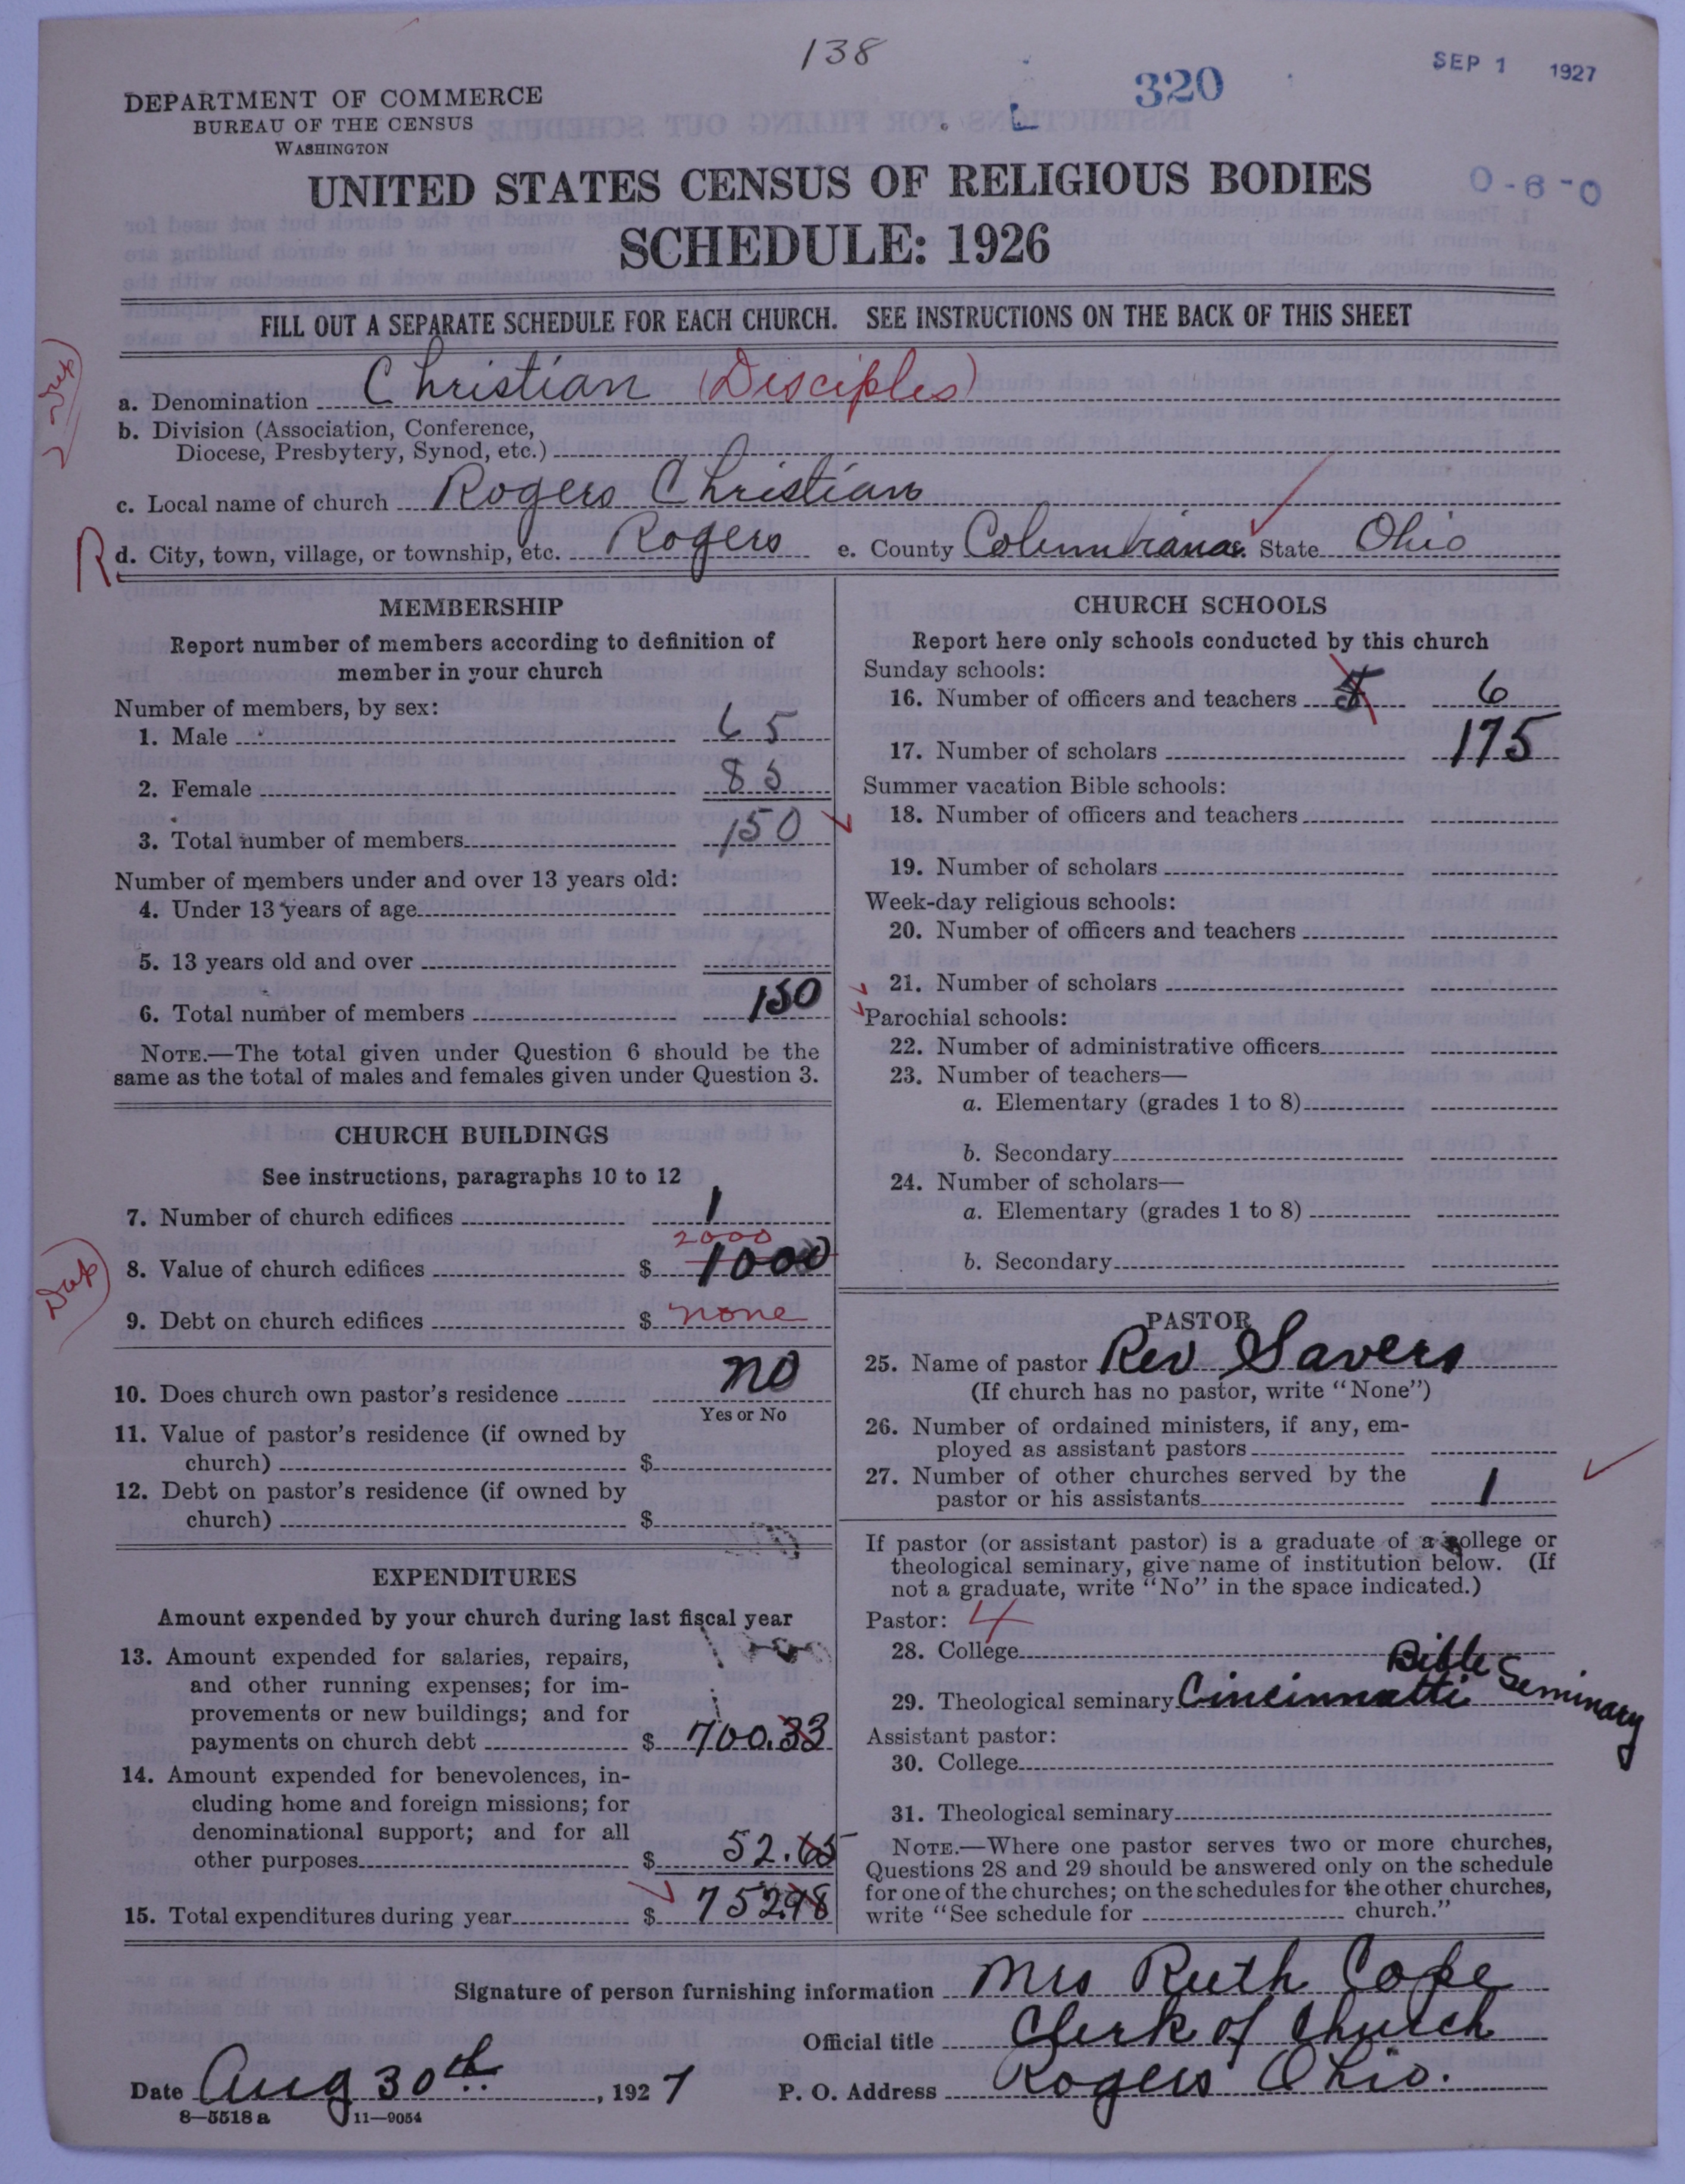 138
320
SEP 1 1927
DEPARTMENT OF COMMERCE
BUREAU OF THE CENSUS
WASHINGTON
UNITED STATES CENSUS OF RELIGIOUS BODIES
0-6-0
SCHEDULE: 1926
FILL OUT A SEPARATE SCHEDULE FOR EACH CHURCH. SEE INSTRUCTIONS ON THE BACK OF THIS SHEET
a. Denomination Christian (Disciples)
b. Division (Association, Conference,
Diocese, Presbytery, Synod, etc.)
c. Local name of church Rogers Christian
R d. City, town, village, or township, etc. Rogers e. County Columbiana State Ohio
MEMBERSHIP
Report number of members according to definition of
member in your church
Number of members, by sex:
1. Male 65
2. Female 85
3. Total number of members 150
Number of members under and over 13 years old:
4. Under 13 years of age
5. 13 years old and over
6. Total number of members 150
NOTE.—The total given under Question 6 should be the
same as the total of males and females given under Question 3.
CHURCH BUILDINGS
See instructions, paragraphs 10 to 12
7. Number of church edifices 1
2000
8. Value of church edifices $ 1000
9. Debt on church edifices $ none
10. Does church own pastor's residence no
Yes or No
11. Value of pastor's residence (if owned by
church) $
12. Debt on pastor's residence (if owned by
church) $
EXPENDITURES
Amount expended by your church during last fiscal year
13. Amount expended for salaries, repairs,
and other running expenses; for im-
provements or new buildings; and for
payments on church debt $ 700.33
14. Amount expended for benevolences, in-
cluding home and foreign missions; for
denominational support; and for all
other purposes $ 52.65
15. Total expenditures during year $ 752.98
CHURCH SCHOOLS
Report here only schools conducted by this church
Sunday schools:
16. Number of officers and teachers 6
17. Number of scholars 175
Summer vacation Bible schools:
18. Number of officers and teachers
19. Number of scholars
Week-day religious schools:
20. Number of officers and teachers
21. Number of scholars
Parochial schools:
22. Number of administrative officers
23. Number of teachers—
a. Elementary (grades 1 to 8)
b. Secondary
24. Number of scholars—
a. Elementary (grades 1 to 8)
b. Secondary
PASTOR
25. Name of pastor Rev Savers
(If church has no pastor, write "None")
26. Number of ordained ministers, if any, em-
ployed as assistant pastors
27. Number of other churches served by the
pastor or his assistants 1
If pastor (or assistant pastor) is a graduate of a college or
theological seminary, give name of institution below. (If
not a graduate, write "No" in the space indicated.)
Pastor: 4
28. College
29. Theological seminary Cincinnatti Bible Seminary
Assistant pastor:
30. College
31. Theological seminary
NOTE.—Where one pastor serves two or more churches,
Questions 28 and 29 should be answered only on the schedule
for one of the churches; on the schedules for the other churches,
write "See schedule for church."
Signature of person furnishing information Mrs Ruth Cope
Official title Clerk of Church
Date Aug 30th, 1927 P. O. Address Rogers Ohio.
8—5518 a 11—9054